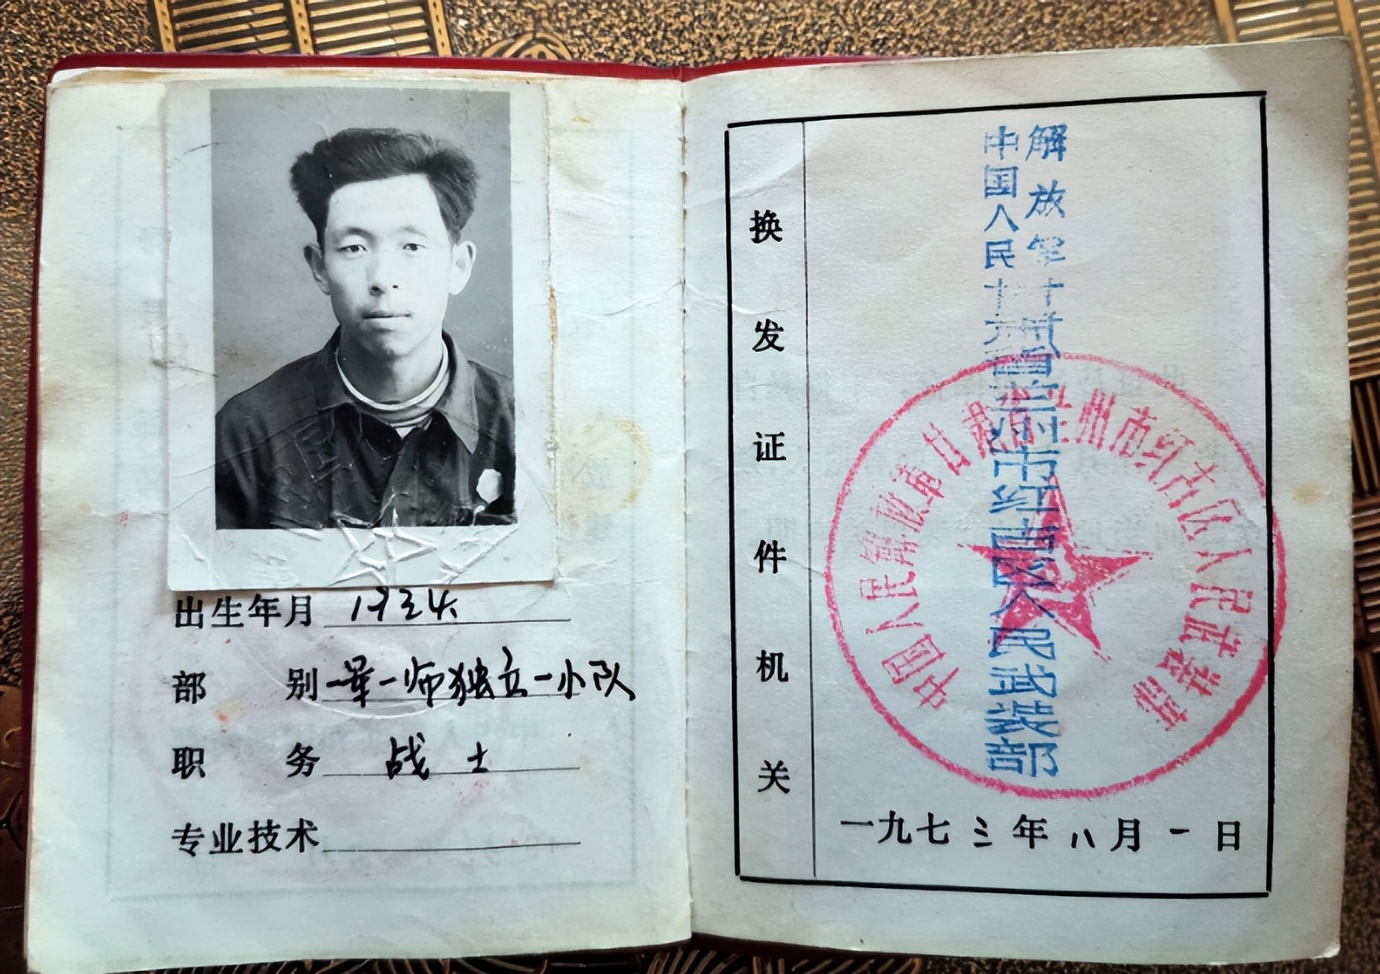 出生年月 1934
部别 一军一师独立一小队
职务 战士
专业技术
换发证件机关
中国人民
解放军甘肃省兰州市红古区人民武装部
中国人民解放军甘肃省兰州市红古区人民武装部
一九七三年八月一日